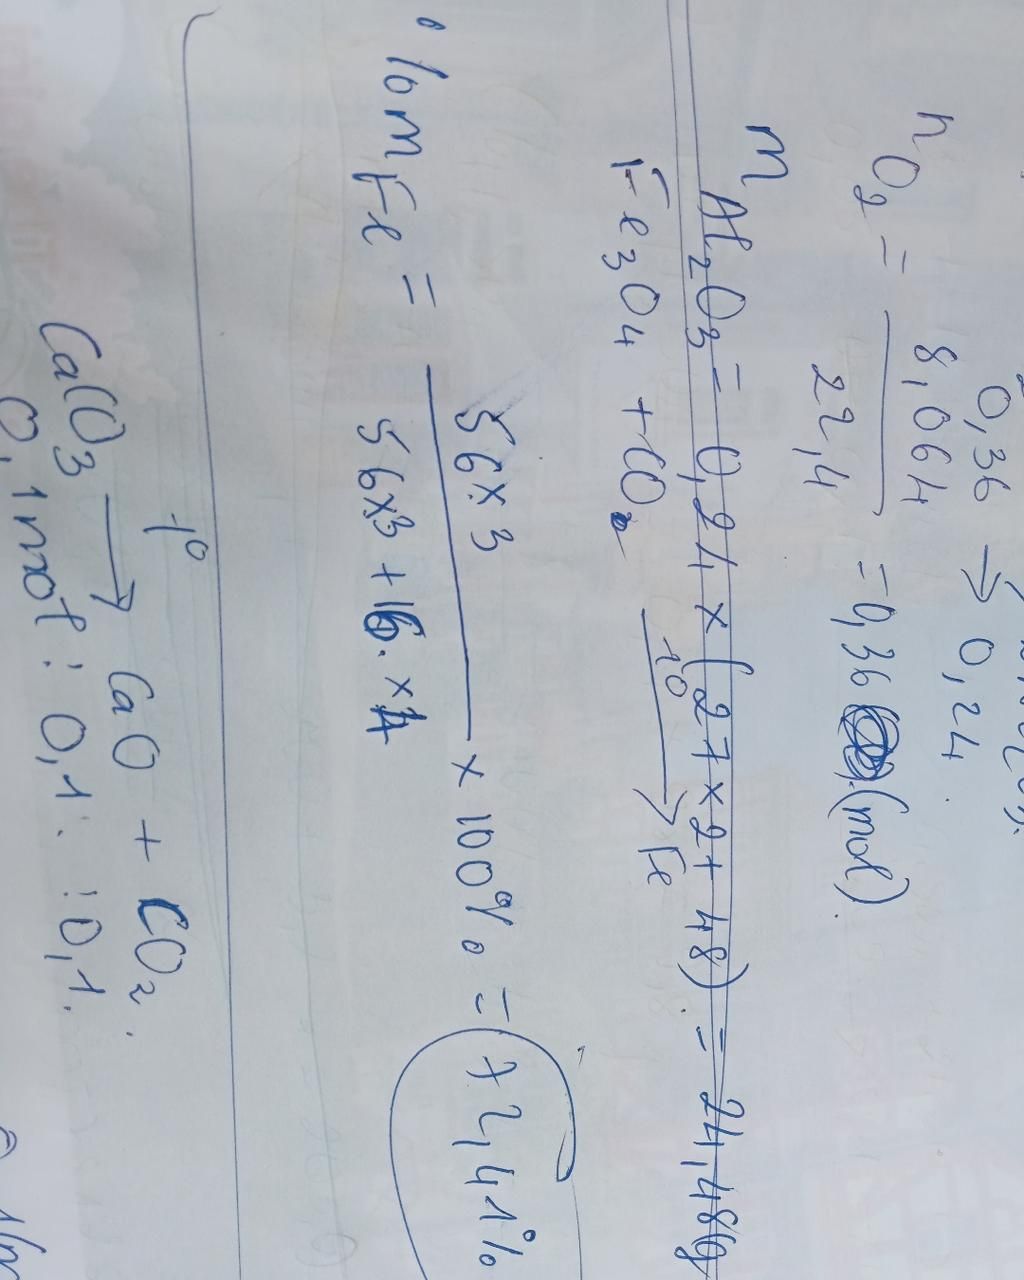 0,36 → 0,24.
nO2 = 8,064 / 22,4 = 0,36 (mol)
mAl2O3 = 0,24 x (27x2+48) = 24,48g
Fe3O4 + CO —t°→ Fe
%mFe = 56x3 / 56x3 + 16.x4 x 100% = 72,41%
CaCO3 —t°→ CaO + CO2.
0,1mol : 0,1. : 0,1.